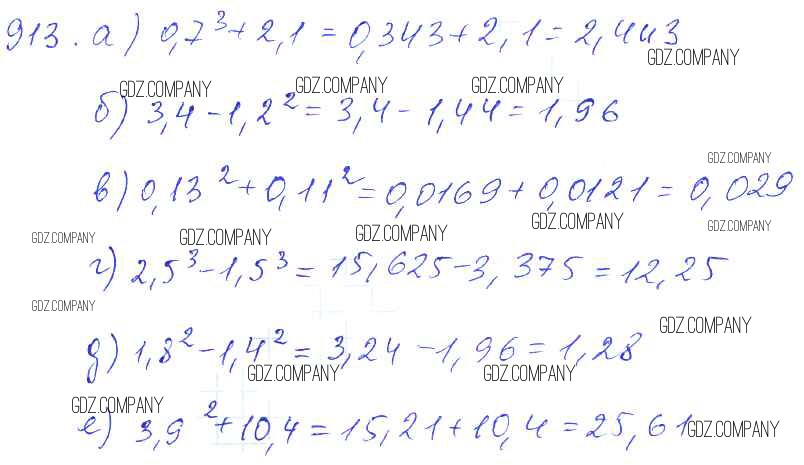 913. а) 0,7³ + 2,1 = 0,343 + 2,1 = 2,443
GDZ.COMPANY
GDZ.COMPANY GDZ.COMPANY GDZ.COMPANY
б) 3,4 - 1,2² = 3,4 - 1,44 = 1,96
GDZ.COMPANY
в) 0,13² + 0,11² = 0,0169 + 0,0121 = 0,029
GDZ.COMPANY GDZ.COMPANY GDZ.COMPANY GDZ.COMPANY GDZ.COMPANY
г) 2,5³ - 1,5³ = 15,625 - 3,375 = 12,25
GDZ.COMPANY
GDZ.COMPANY
д) 1,8² - 1,4² = 3,24 - 1,96 = 1,28
GDZ.COMPANY GDZ.COMPANY
GDZ.COMPANY
е) 3,9² + 10,4 = 15,21 + 10,4 = 25,61
GDZ.COMPANY